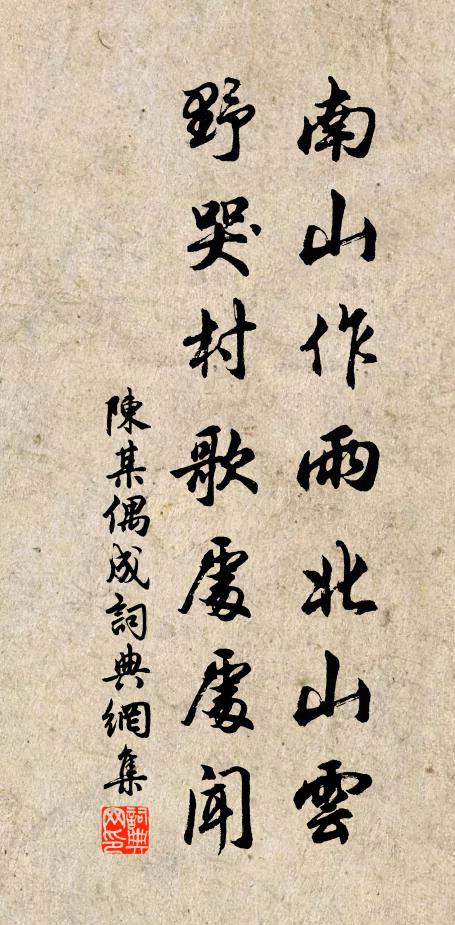 南山作雨北山雲
野哭村歌處處闻
陳某偶成詞典網集
詞典网印